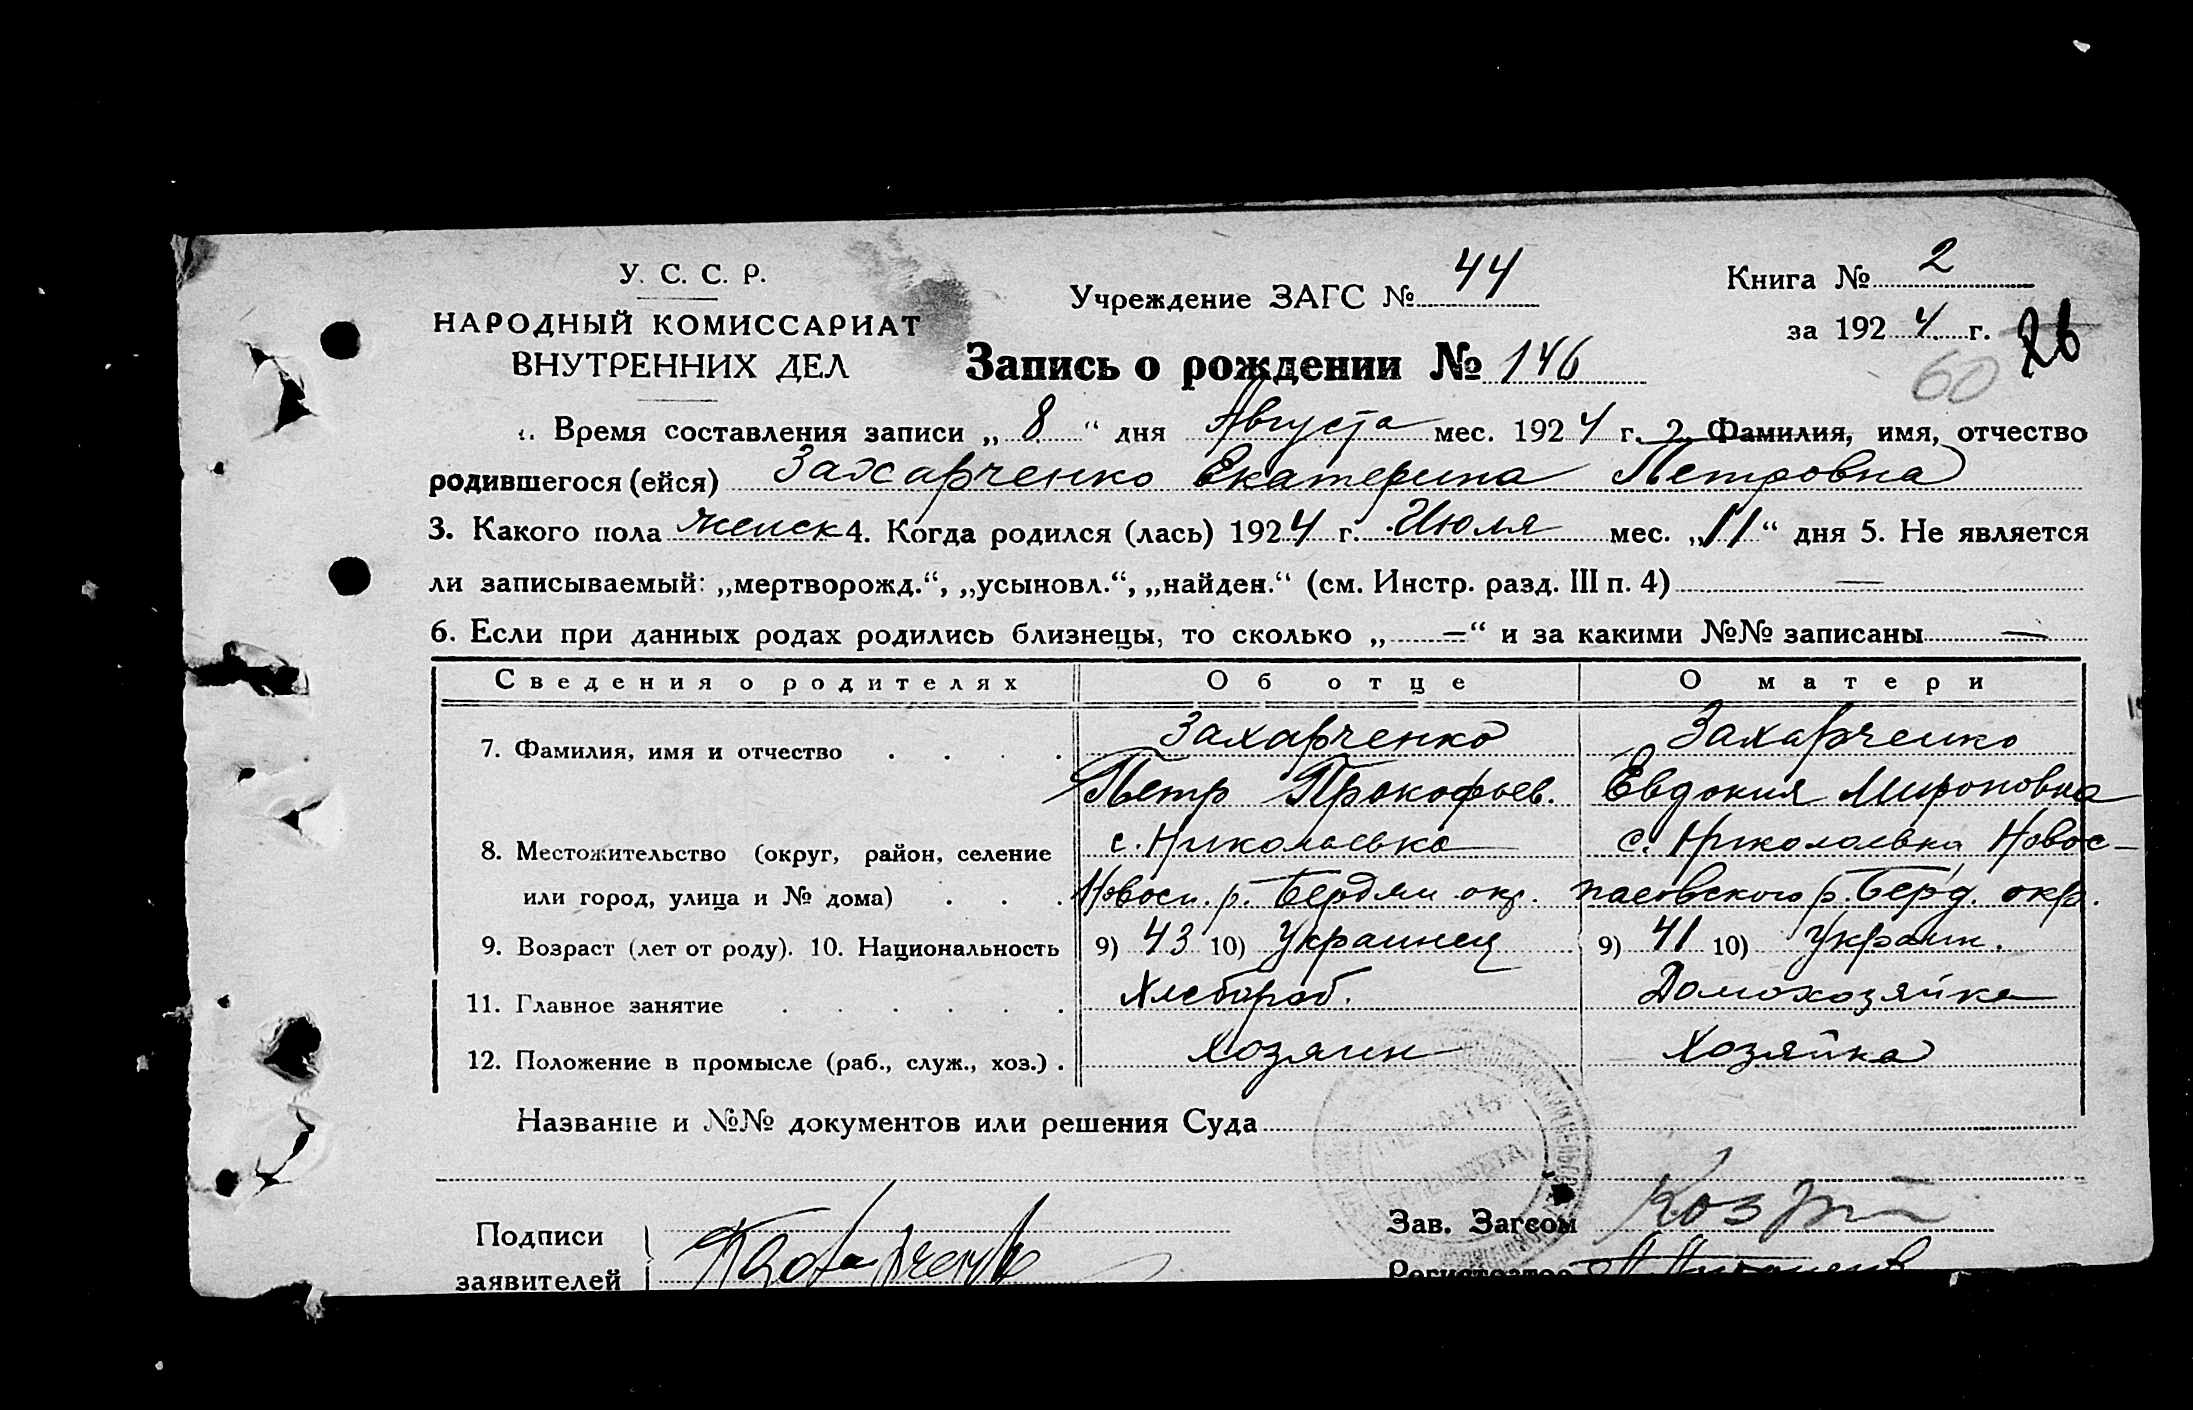 У. С. С. Р.
НАРОДНЫЙ КОМИССАРИАТ
ВНУТРЕННИХ ДЕЛ
Учреждение ЗАГС № 44
Книга № 2
за 1924 г.
26
60
Запись о рождении № 146
1. Время составления записи „8“ дня Августа мес. 1924 г. 2. Фамилия, имя, отчество
родившегося (ейся) Захарченко Екатерина Петровна
3. Какого пола женск 4. Когда родился (лась) 1924 г. Июля мес. „11“ дня 5. Не является
ли записываемый: „мертворожд.“, „усыновл.“, „найден.“ (см. Инстр. разд. III п. 4) —
6. Если при данных родах родились близнецы, то сколько „—“ и за какими №№ записаны —
Сведения о родителях Об отце О матери
7. Фамилия, имя и отчество Захарченко Захарченко
Петр Прокофьев. Евдокия Мироновна
8. Местожительство (округ, район, селение с. Николаевка с. Николаевка Новос-
или город, улица и № дома) Новосп. р. Бердян окр. пасовского р. Берд. окр.
9. Возраст (лет от роду). 10. Национальность 9) 43 10) Украинец 9) 41 10) Украин.
11. Главное занятие Хлебороб. Домохозяйка
12. Положение в промысле (раб., служ., хоз.) Хозяин Хозяйка
Название и №№ документов или решения Суда
Подписи
заявителей
Зав. Загсом
Регистратор